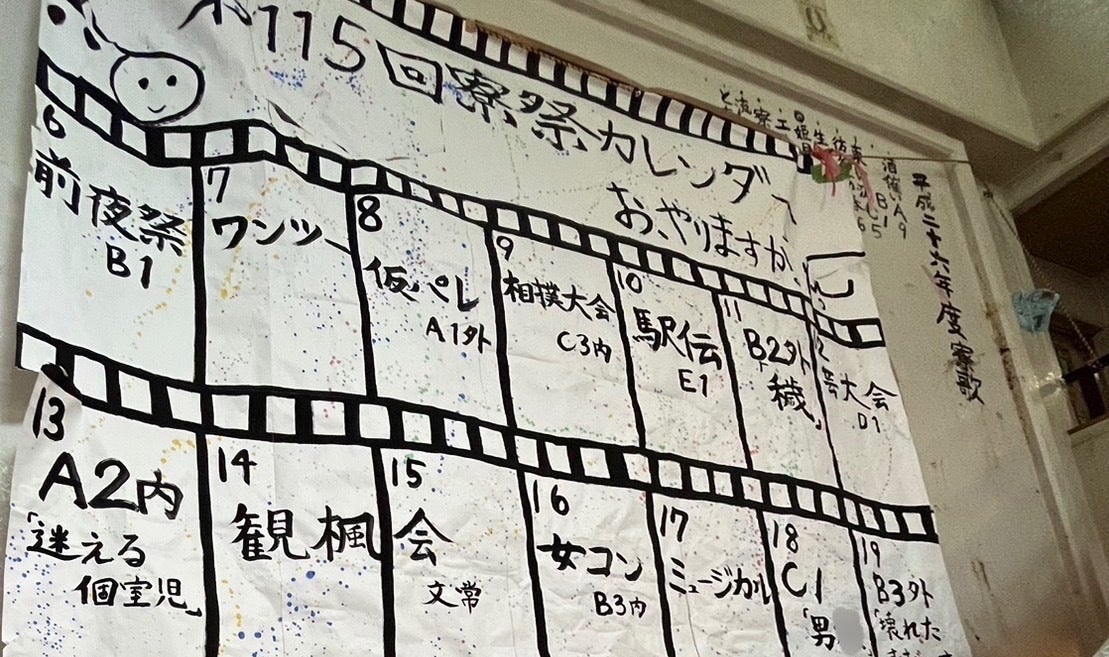 第115回寮祭カレンダー
おやりますか、
6
前夜祭
B1
7
ワンツー
8
仮パレ
A1外
9
相撲大会
C3内
10
駅伝
E1
11
B2外
「穢」
大会
D1
13
A2内
「迷える
個室児」
14
観楓会
15
文常
16
女コン
B3内
17
ミュージカル
18
C1
「男
19
B3外
「壊れた
平成二十六年度寮歌